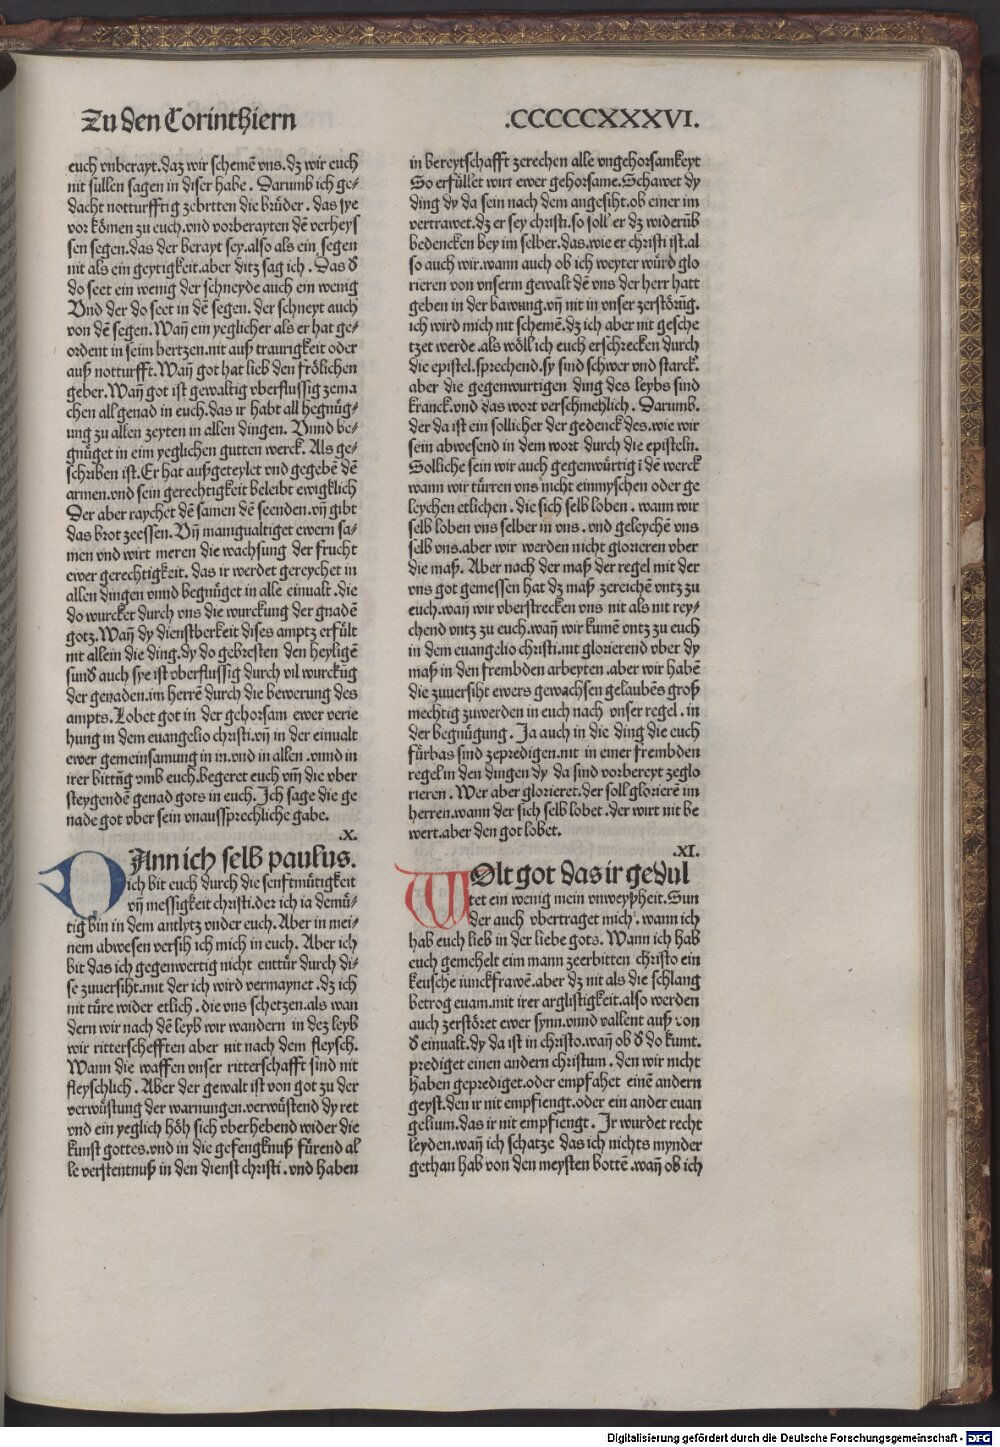 Zu den Corinthiern
.CCCCCXXXVI.
euch vnberayt.daz wir schemē vns.dz wir euch
nit sullen sagen in diser habe. Darumb ich ge⸗
dacht notturfftig zebitten die brüder. das sye
vor kömen zu euch.vnd vorberayten dē verheys
sen segen.das der berayt sey.also als ein segen
nit als ein geytigkeit.aber ditz sag ich. Das d
do seet ein wenig der schneyde auch ein wenig
Vnd der do seet in dē segen. der schneyt auch
von dē segen.Wañ ein yeglicher als er hat ge⸗
ordent in seim hertzen.nit auß traurigkeit oder
auß notturfft.Wañ got hat lieb den frölichen
geber.Wañ got ist gewaltig vberflussig zema
chen all genad in euch.das ir habt all begnüg⸗
ung zu allen zeyten in allen dingen. Vnnd be⸗
gnüget in eim yeglichen gutten werck. Als ge⸗
schriben ist.Er hat außgeteylet vnd gegebē dē
armen.vnd sein gerechtigkeit beleibt ewigklich
Der aber raychet dē samen dē seenden.vñ gibt
das brot zeessen.Vñ manigualtiget ewern sa⸗
men vnd wirt meren die wachsung der frucht
ewer gerechtigkeit. das ir werdet gereychet in
allen dingen vnnd begnüget in alle einualt.die
do wurcket durch vns die wurckung der gnadē
gotz.Wañ dy dienstberkeit dises amptz erfült
nit allein die ding.dy do gebresten den heyligē
sund auch sye ist vberflussig durch vil wurckūg
der genaden.im herrē durch die bewerung des
ampts.Lobet got in der gehorsam ewer verie
hung in dem euangelio christi.vñ in der einualt
ewer gemeinsamung in in.vnd in allen.vnnd in
irer bittūg vmb euch.begeret euch vm̄ die vber
steygendē genad gots in euch.Ich sage die ge
nade got vber sein vnaussprechliche gabe.
.X.
DAnn ich selb paulus.
ich bit euch durch die senftmütigkeit
vñ messigkeit christi.der ich ia demü⸗
tig bin in dem antlytz vnder euch.Aber in mei⸗
nem abwesen versih ich mich in euch. Aber ich
bit das ich gegenwertig nicht enttür durch di⸗
se zuuersiht.mit der ich wird vermaynet.dz ich
nit türe wider etlich.die vns schetzen.als wan
dern wir nach dē leyb wir wandern in dez leyb
wir ritterschefften aber nit nach dem fleysch.
Wann die waffen vnser ritterschafft sind nit
fleyschlich. Aber der gewalt ist von got zu der
verwüstung der warnungen.verwüstend dy ret
vnd ein yeglich höh sich vberhebend wider die
kunst gottes.vnd in die gefengknuß fürend al
le verstentnuß in den dienst christi.vnd haben
in bereytschafft zerechen alle vngehorsamkeyt
So erfüllet wirt ewer gehorsame.Schawet dy
ding dy da sein nach dem angesiht.ob einer im
vertrawet.dz er sey christi.so soll er dz widerüb
bedencken bey im selber.das.wie er christi ist.al
so auch wir.wann auch ob ich weyter würd glo
rieren von vnserm gewalt dē vns der herr hatt
geben in der bawung.vñ nit in vnser zerstörūg.
ich wird mich nit schemē.dz ich aber nit gesche
tzet werde.als wöll ich euch erschrecken durch
die epistel.sprechend.sy sind schwer vnd starck.
aber die gegenwurtigen ding des leybs sind
kranck.vnd das wort verschmehlich. Darumb.
der da ist ein sollicher der gedenck des.wie wir
sein abwesend in dem wort durch die episteln.
Solliche sein wir auch gegenwürtig ī dē werck
wann wir türren vns nicht einmyschen oder ge
leychen etlichen. die sich selb loben. wann wir
selb loben vns selber in vns. vnd geleychē vns
selb vns.aber wir werden nicht glorieren vber
die maß. Aber nach der maß der regel mit der
vns got gemessen hat dz maß zereichē vntz zu
euch.wañ wir vberstrecken vns nit als nit rey⸗
chend vntz zu euch.wañ wir kumē vntz zu euch
in dem euangelio christi.nit glorierend vber dy
maß in den frembden arbeyten.aber wir habē
die zuuersiht ewers gewachsen gelaubēs groß
mechtig zuwerden in euch nach vnser regel. in
der begnügung. Ja auch in die ding die euch
fürbas sind zepredigen.nit in einer frembden
regel in den dingen dy da sind vorbereyt zeglo
rieren. Wer aber glorieret.der soll glorierē im
herren.wann der sich selb lobet.der wirt nit be
wert.aber den got lobet.
.XI.
WOlt got das ir gedül
tet ein wenig mein vnweyßheit.Sun
der auch vbertraget mich. wann ich
hab euch lieb in der liebe gots. Wann ich hab
euch gemehelt eim mann zeerbitten christo ein
keusche iunckfrawē.aber dz nit als die schlang
betrog euam.mit irer arglistigkeit.also werden
auch zerstöret ewer synn.vnnd vallent auß von
d einualt.dy da ist in christo.wañ ob d do kumt.
prediget einen andern christum. den wir nicht
haben geprediget.oder empfahet einē andern
geyst.den ir nit empfiengt.oder ein ander euan
gelium.das ir nit empfiengt. Ir wurdet recht
leyden.wañ ich schatze das ich nichts mynder
gethan hab von den meysten bottē.wañ ob ich
Digitalisierung gefördert durch die Deutsche Forschungsgemeinschaft - DFG